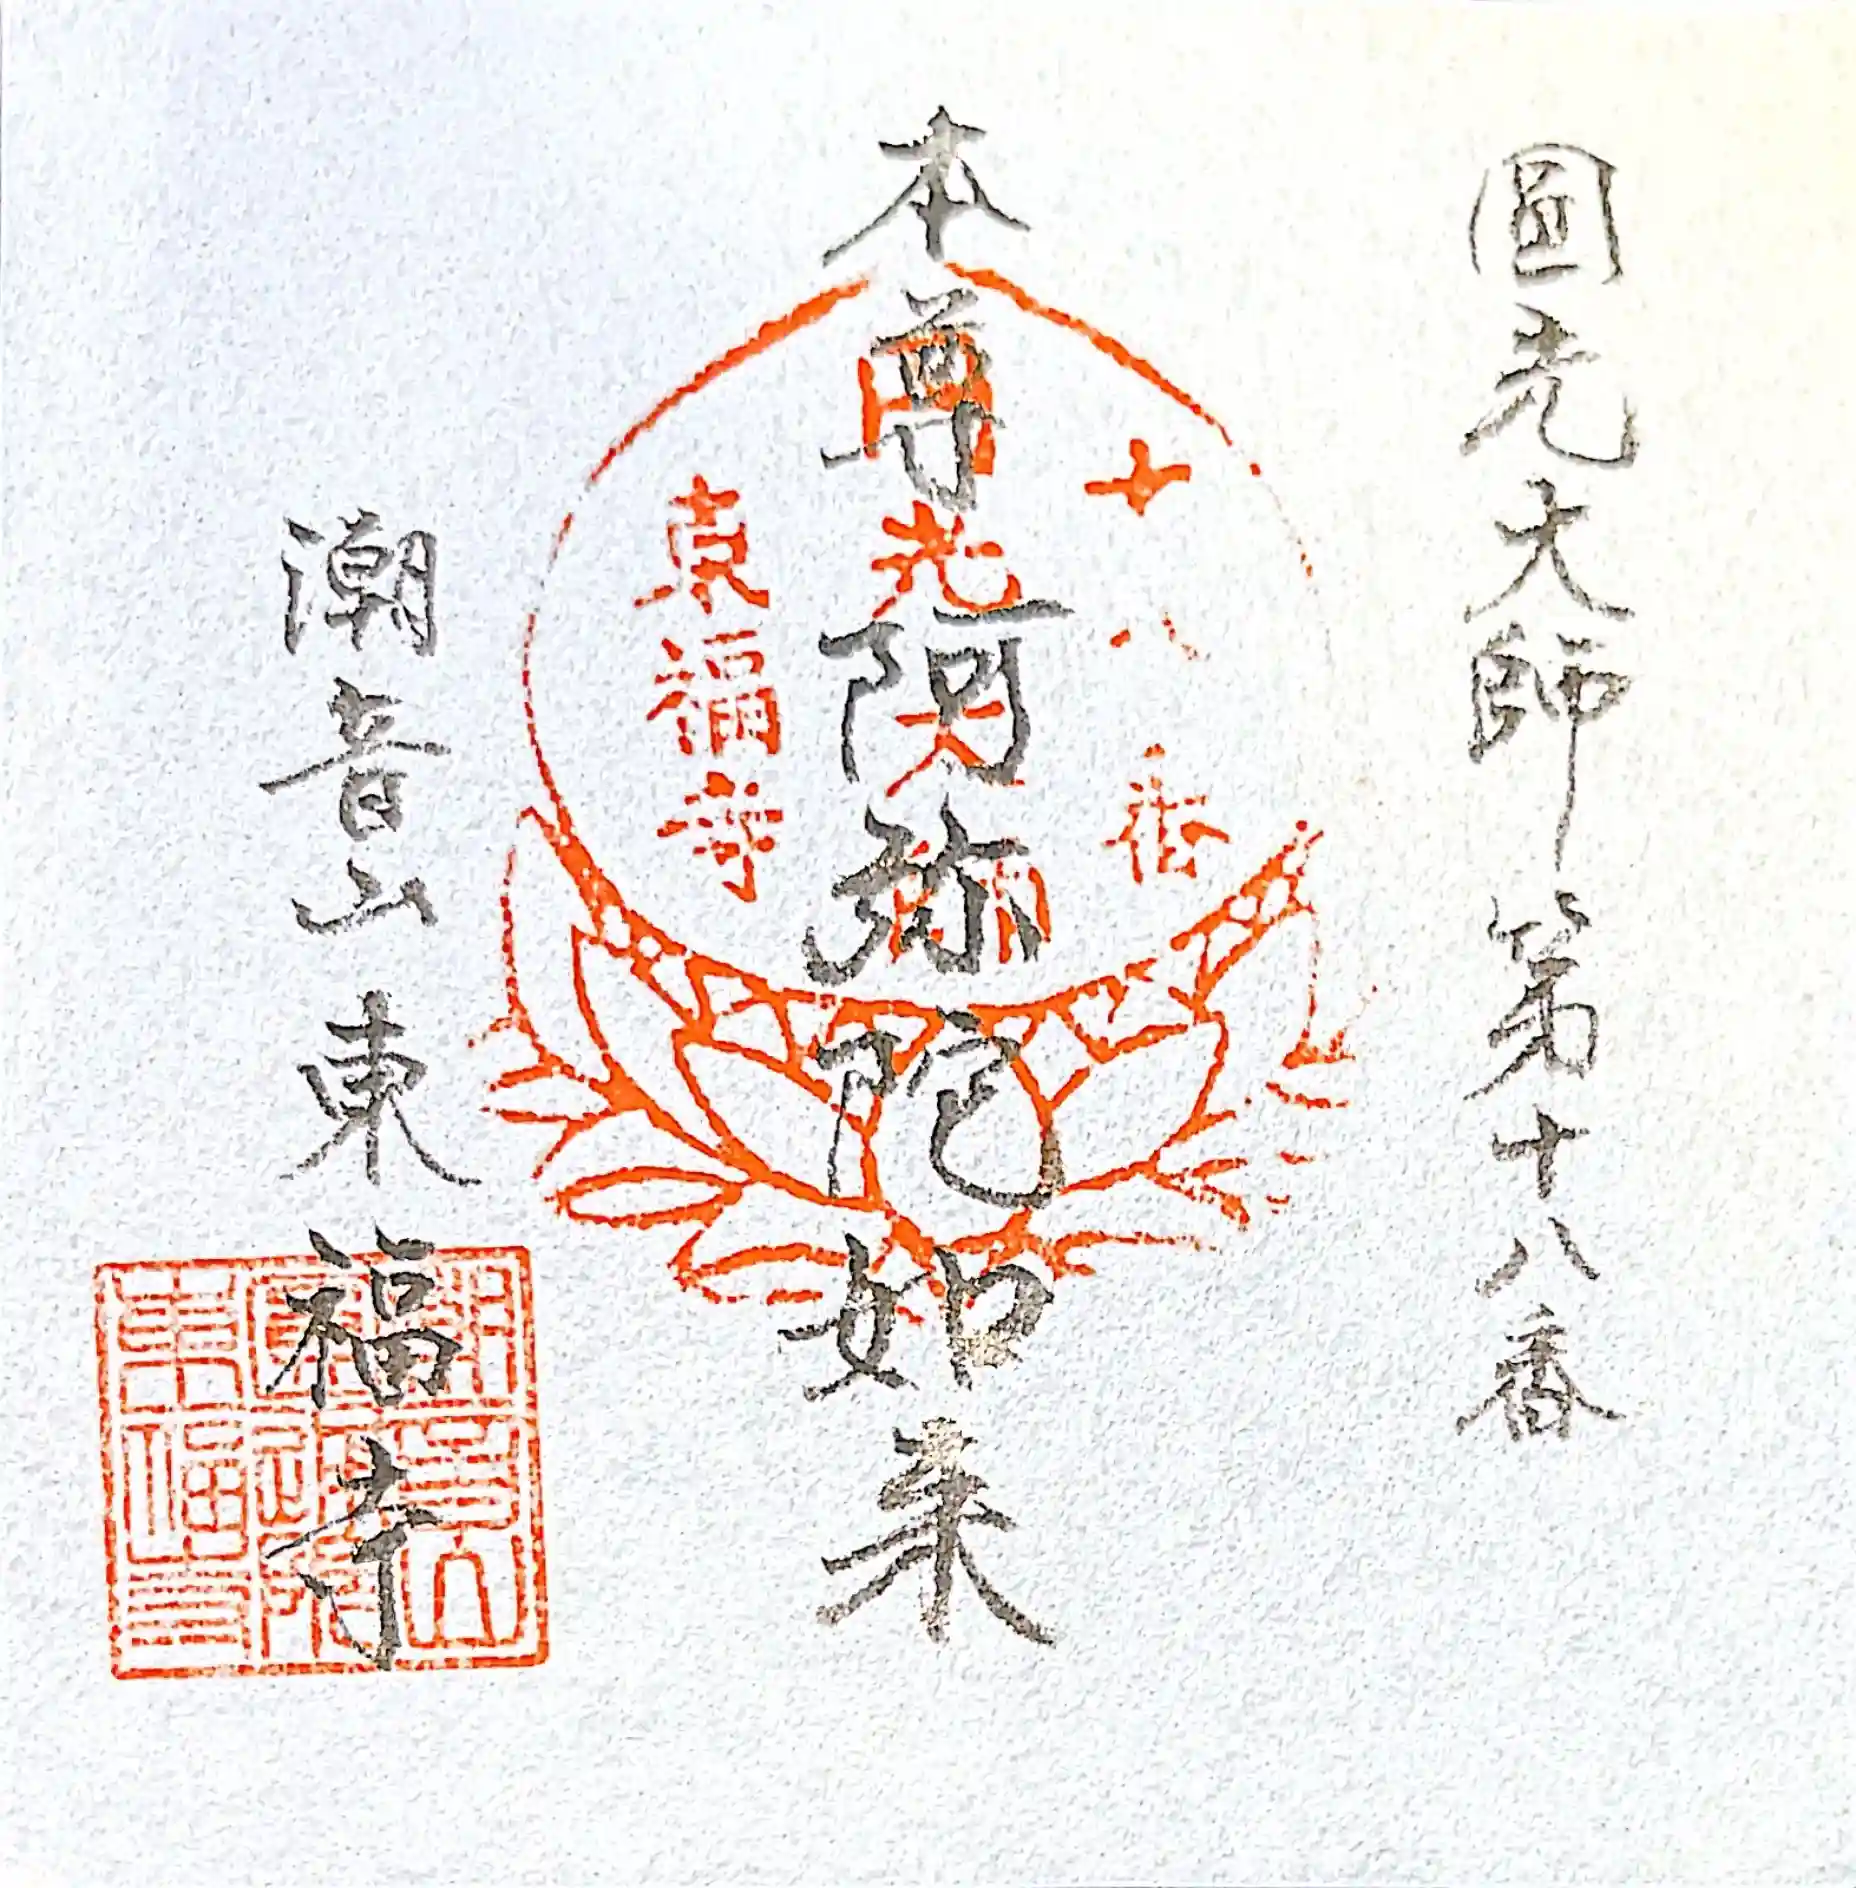 圓光大師第十八番
本尊阿弥陀如来
潮音山東福寺
十八番
円光大師
東福寺